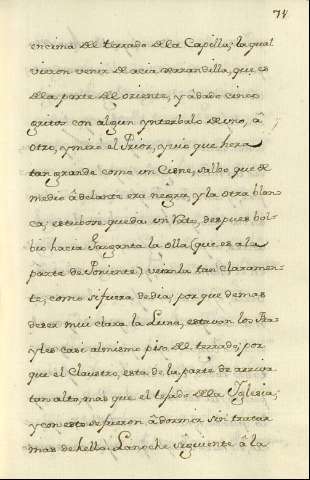 74
encima del terrado dela Capilla; la qual
vieron venir de acia Xarandilla, que es
dela parte del oriente, y â dado cinco
gritos con algun ynterbalo de uno, â
otro, y miro el Prior, y vio que hera
tan grande como un Cisne, salbo que de
medio â delante era negra, y la otra blan-
ca; estubose queda un Rato, despues bol-
bio hacia Garganta la olla (que es a la
parte de Poniente) veianla tan claramen-
te, como si fuera de dia, por que demas
de ser mui clara la Luna, estavan los fra-
yles casi al mismo piso del terrado, por
que el Claustro, esta de la parte de arriva
tan alto, mas que el tejado dela Iglesia;
y con esto se fueron â dormir sin tratar
mas de hello. La noche siguiente â la